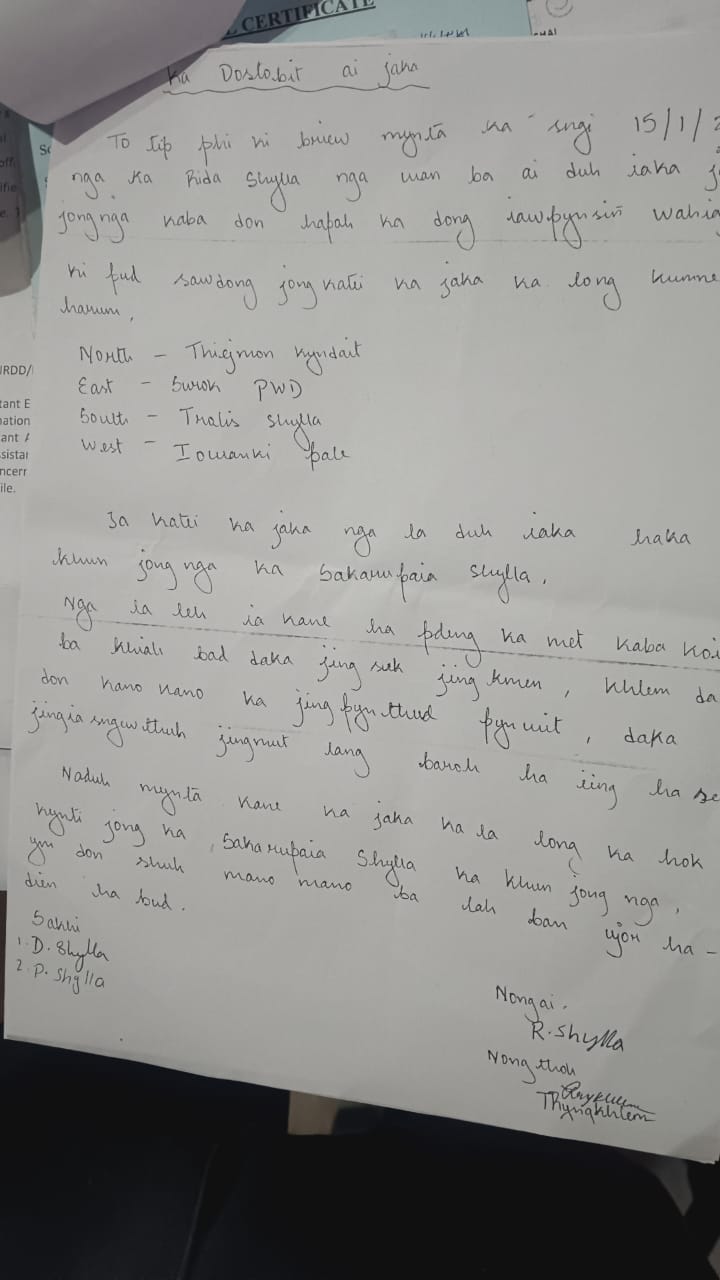 CERTIFICATE
Ka Dostobit ai jaka
To tip phi ki briew mynta ka sngi 15/1/2
nga ka Rida Shylla nga wan ba ai duh iaka j
jongnga kaba don hapoh ka dong iawpynsiñ wahia
ki pud sawdong jong katei ka jaka ka long kumne
harum,
North - Thiejmon Kyndait
East - Surok PWD
South - Tralis Shylla
West - Iowanki Pale
Ia katei ka jaka nga la duh iaka haka
khun jong nga ka Sakarupaia Shylla,
Nga ia leh ia kane ha pdeng ka met kaba koi
ba khiah bad daka jing suk jing kmen, khlem da
don kano kano ka jing pyn thud pyn uit, daka
jingia sngewthuh jingmut lang baroh ha iing ha se
Naduh mynta kane ka jaka ka la long ka hok
kynti jong ka Sakarupaia Shylla ka khun jong nga,
ym don shuh mano mano ba lah ban ujor ha-
dien ha bud.
Sakhi
1. D. Shylla
2. P. Shylla
Nongai.
R. Shylla
Nongthoh
Thyngkhlem
JRDD/
tant E
nation
ant A
ssistar
ncerr
ile.